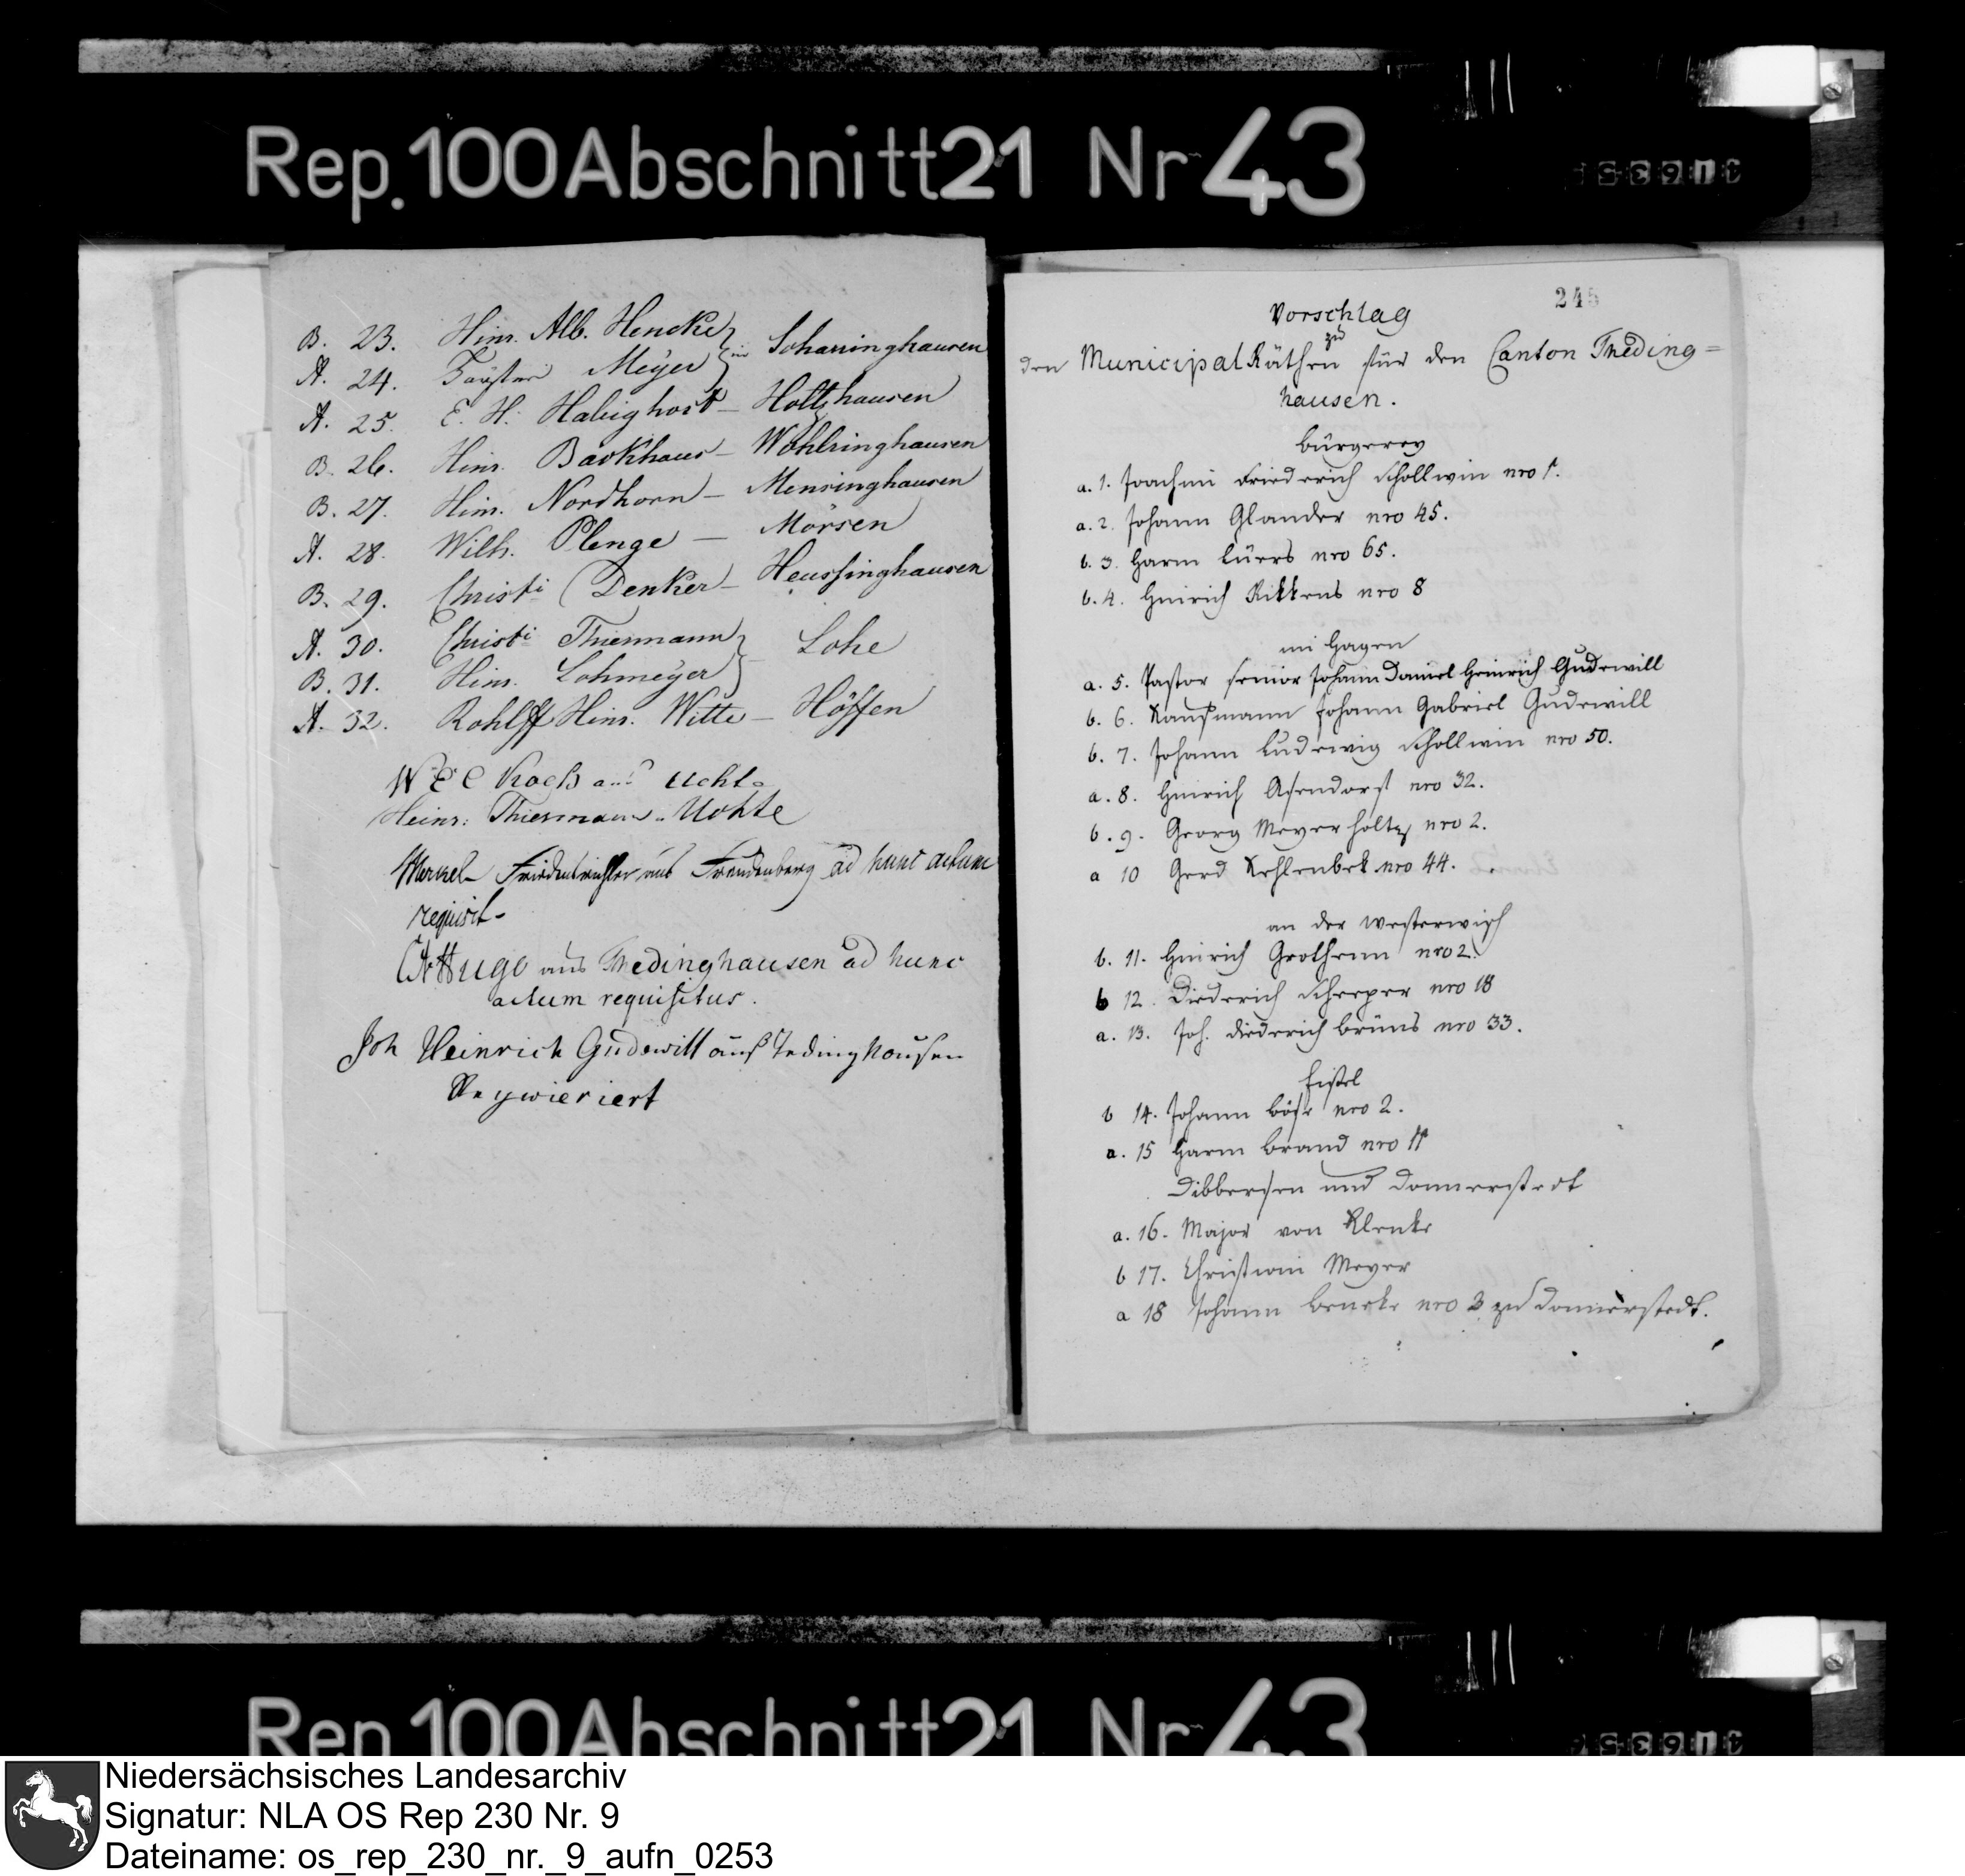 Rep. 100 Abschnitt 21 Nr 43
B. 23. Hinr. Alb. Hencke
A. 24. Förster Meÿer } in Scharringhausen
A. 25. E. H. Habighorst – Holtzhausen
B. 26. Hinr. Backhaus – Wohlringhausen
B. 27. Hinr. Nordhorn – Mensinghausen
A. 28. Wilh. Plenge – Mörsen
B. 29. Christi Denker – Heussinghausen
A. 30. Christi Thiermann
B. 31. Hinr. Lohmeÿer } Lohe
A. 32. Rohlff Hinr. Witte – Höffen
W E C Koch aus Uchte
Heinr: Thiermann Uchte
Merkel Friedensrichter aus Freudenberg ad hunc actum
requisit.
Hugo aus Thedinghausen ad hunc
actum requisitus.
Joh Heinrich Gudewill auß Tedinghausen
Reqwieriert
245
Vorschlag
zu
den Municipal Räthen für den Canton Theding=
hausen.
Bürgerey
a. 1. Joachim Friederich Schollwin nro 1.
a. 2. Johann Glander nro 45.
b. 3. Harm Lüers nro 65.
b. 4. Hinrich Rikkens nro 8
im Hagen
a. 5. Pastor senior Johann Daniel Heinrich Gudewill
b. 6. Kaufmann Johann Gabriel Gudewill
b. 7. Johann Ludewig Schollwin nro 50.
a. 8. Hinrich Asendorf nro 32.
b. 9. Georg Meyerholtz nro 2.
a 10 Gerd Kehlenbek nro 44.
an der Westerwisch
b. 11. Hinrich Grothenn nro 2.
b 12. Diederich Scheeper nro 18
a. 13. Joh. Diederich Brüns nro 33.
Eistel
b 14. Johann Böse nro 2.
a. 15 Harm Brand nro 11
Dibbersen und Donnerstedt
a. 16. Major von Klenke
b 17. Christian Meyer
a 18 Johann Beneke nro 3 zu Donnerstedt.
Rep. 100 Abschnitt 21 Nr 43
Niedersächsisches Landesarchiv
Signatur: NLA OS Rep 230 Nr. 9
Dateiname: os_rep_230_nr._9_aufn_0253